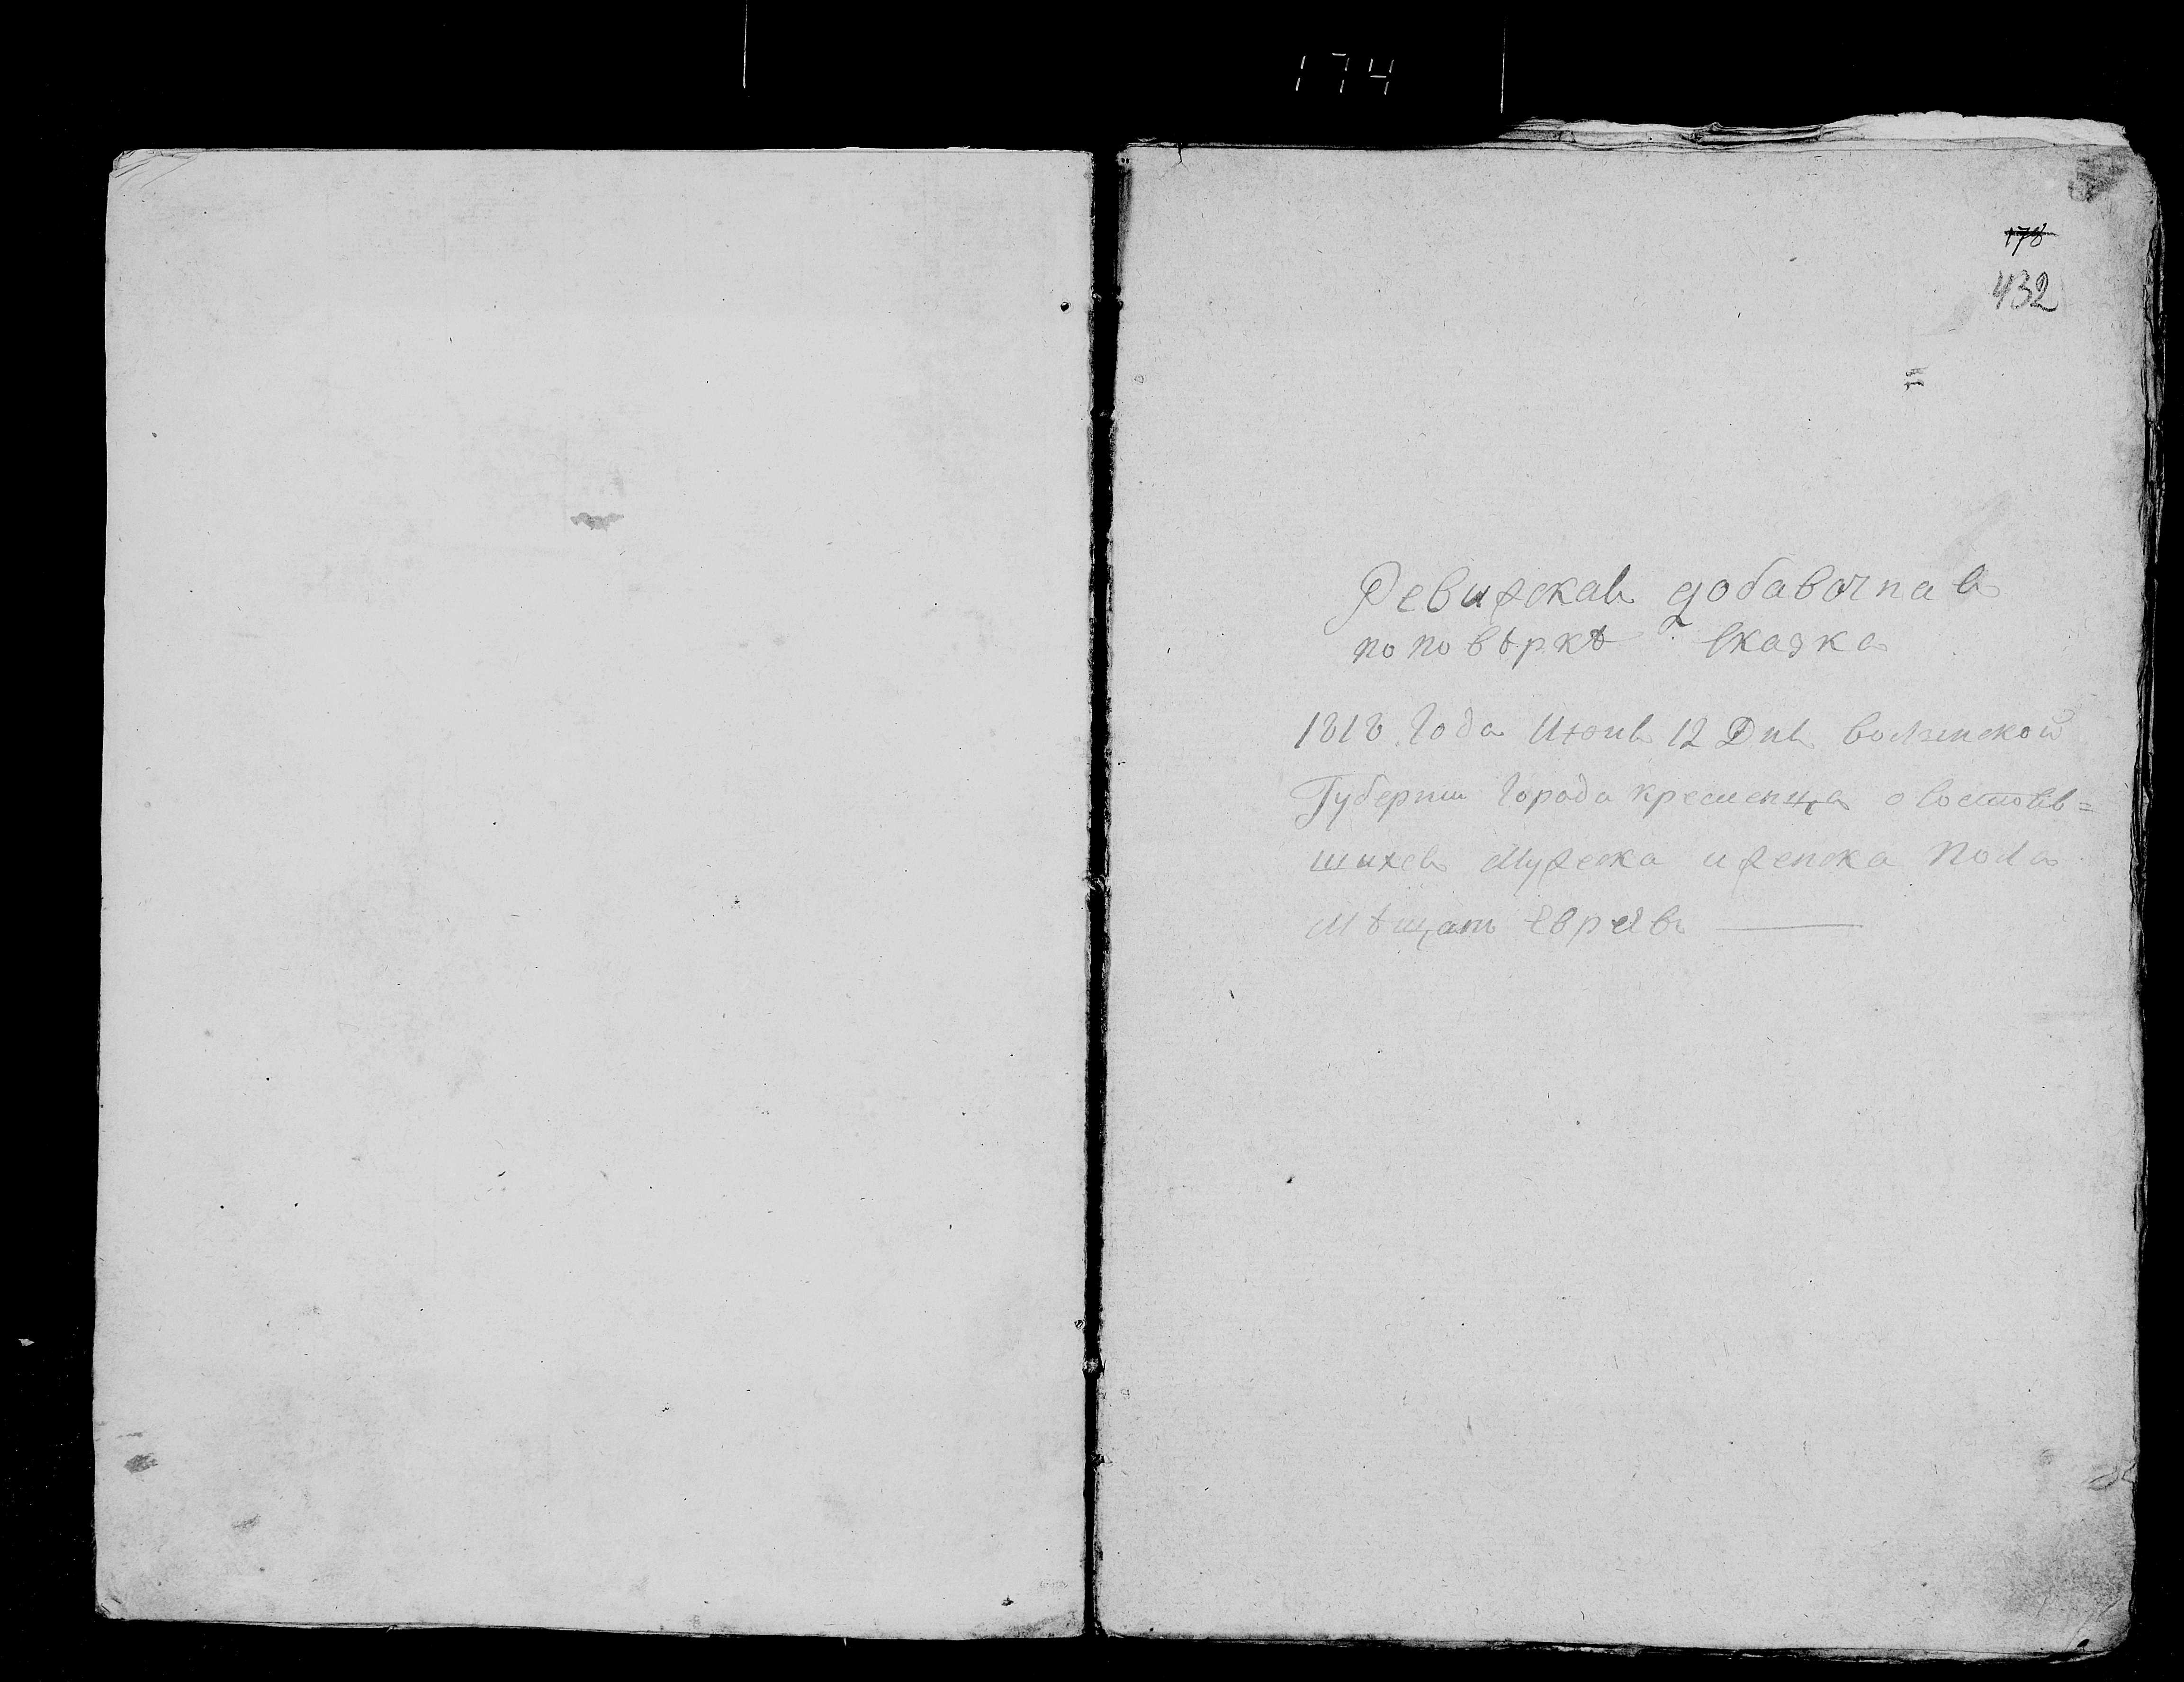 174
178
432
Ревижская добавочная
по повѣркѣ Сказка
1818 Года Июня 12 Дня Волынской
Губернии Города Кременца о Состояв=
шихся Мужеска и женска Пола
Мѣщанъ Евреяв